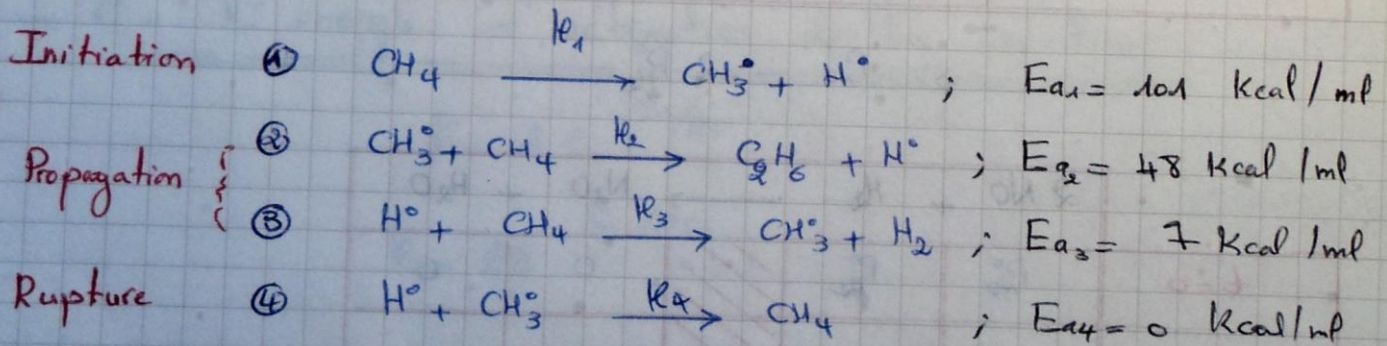 Initiation ① CH₄ —k₁→ CH₃° + H° ; Ea₁ = 101 Kcal/ml
② CH₃° + CH₄ —k₂→ C₂H₆ + H° ; Ea₂ = 48 Kcal/ml
Propagation {
③ H° + CH₄ —k₃→ CH₃° + H₂ ; Ea₃ = 7 Kcal/ml
Rupture ④ H° + CH₃° —k₄→ CH₄ ; Ea₄ = 0 Kcal/ml